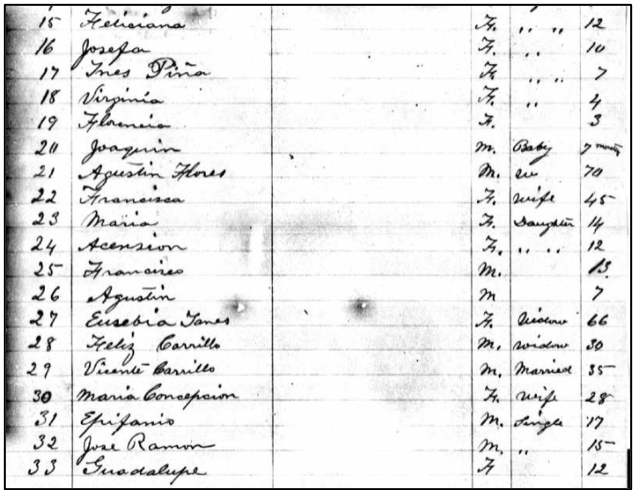 15 Feliciana F. " " 12
16 Josefa F. " 10
17 Ines Piña F. " " 7
18 Virginia F. " 4
19 Florencia F. 3
20 Joaquin M. Baby 7 months
21 Agustin Flores M. 70
22 Francisca F. Wife 45
23 Maria F. Daughter 14
24 Acension F. " " 12
25 Francisco M. 13
26 Agustin M 7
27 Eusebia F. Widow 66
28 Feliz Carrillo M. widow 30
29 Vicente Carrillo M. Married 35
30 Maria Concepcion F. Wife 28
31 Epifanio M. Single 17
32 Jose Ramon M. " 15
33 Guadalupe F 12